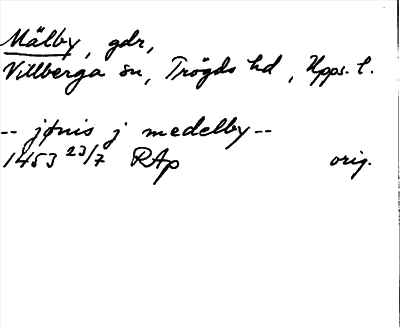 Mälby, gdr,
Villberga sn, Trögds hd, Upps. l.
-- jønis j medelby --
1453 23/7 RAp orig.